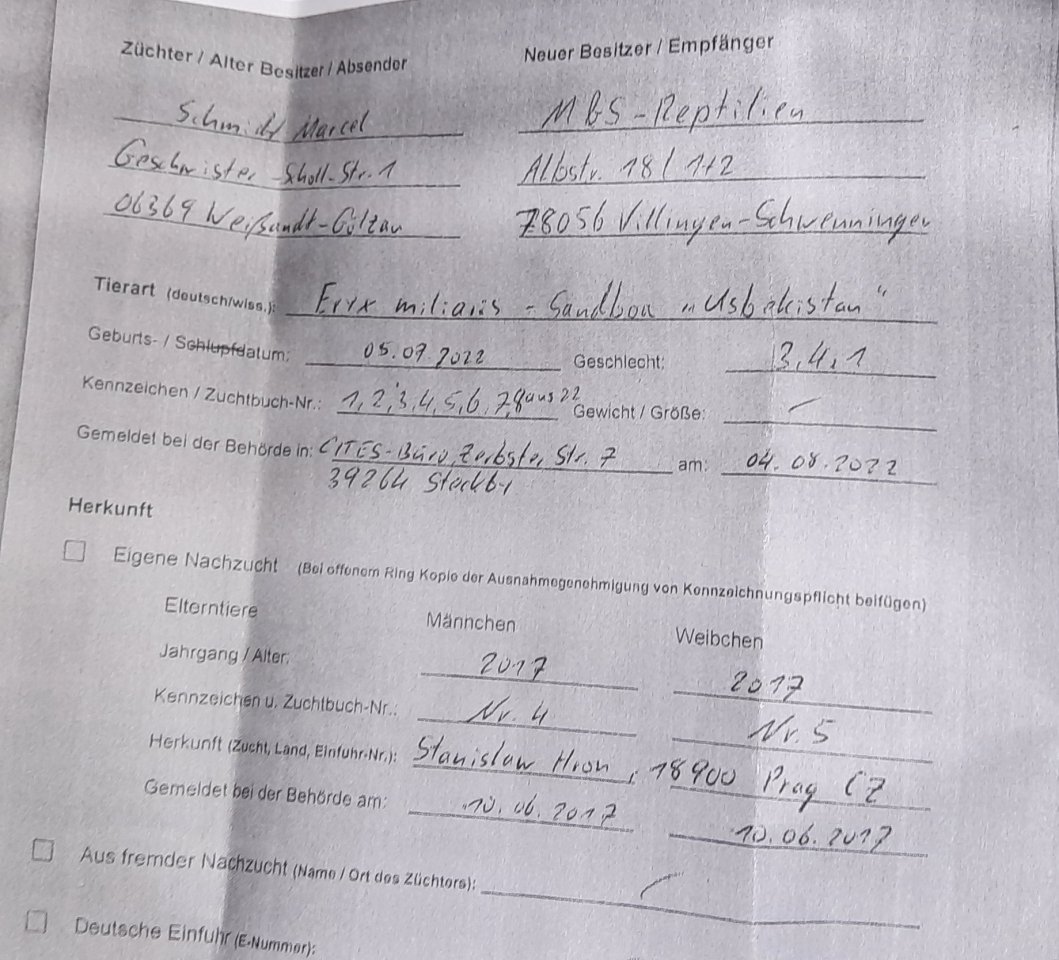 Züchter / Alter Besitzer / Absender Neuer Besitzer / Empfänger
Schmidt Marcel MBS-Reptilien
Geschwister-Scholl-Str. 1 Albstr. 18 / 1+2
06369 Weißandt-Gölzau 78056 Villingen-Schwenningen
Tierart (deutsch/wiss.): Eryx miliaris - Sandboa „Usbekistan“
Geburts- / Schlupfdatum: 05.07.2022 Geschlecht: 3,4,1
Kennzeichen / Zuchtbuch-Nr.: 1,2,3,4,5,6,7,8 aus 22 Gewicht / Größe:
Gemeldet bei der Behörde in: CITES-Büro, Zerbster Str. 7 am: 04.08.2022
39264 Steckby
Herkunft
Eigene Nachzucht (Bei offenem Ring Kopie der Ausnahmegenehmigung von Kennzeichnungspflicht beifügen)
Elterntiere Männchen Weibchen
Jahrgang / Alter: 2017 2017
Kennzeichen u. Zuchtbuch-Nr.: Nr. 4 Nr. 5
Herkunft (Zucht, Land, Einfuhr-Nr.): Stanislaw Hron, 18900 Prag CZ
Gemeldet bei der Behörde am: 10.06.2017 10.06.2017
Aus fremder Nachzucht (Name / Ort des Züchters):
Deutsche Einfuhr (E-Nummer):